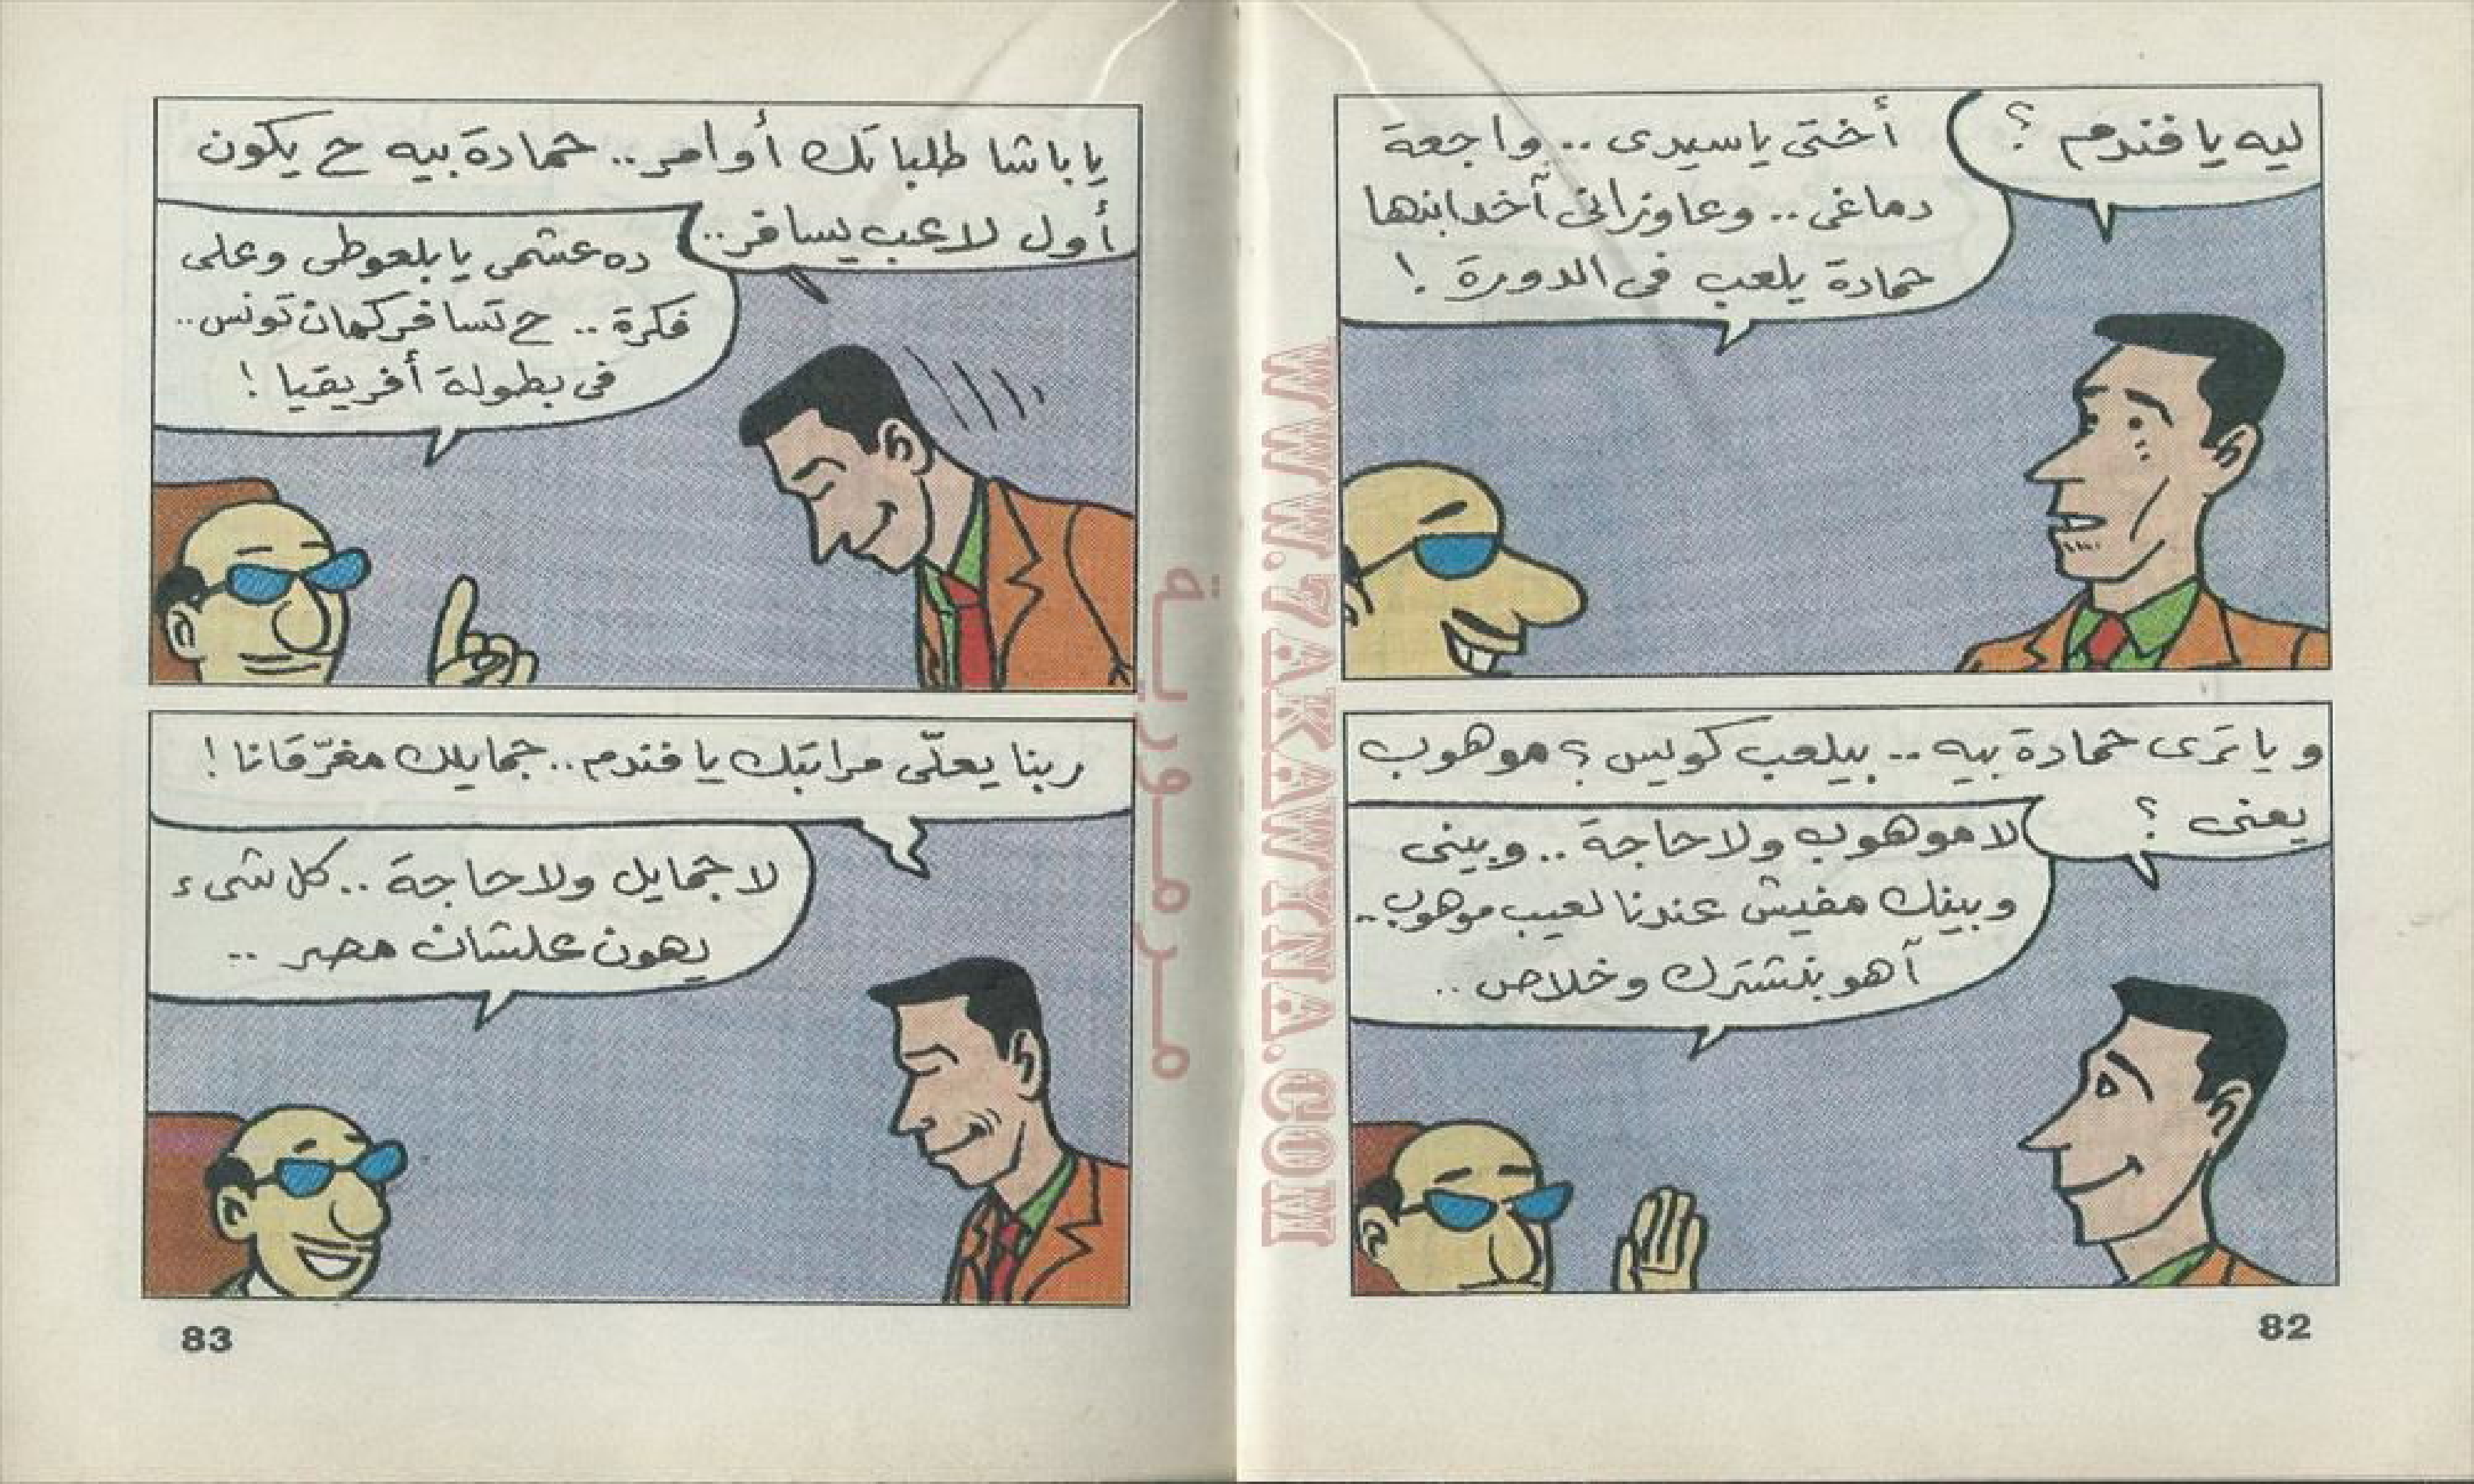 ليه يا فندم ؟
أختى ياسيدى .. واجعة
دماغى .. وعاوزانى آخد ابنها
حمادة يلعب فى الدورة !
و يا ترى حمادة بيه .. بيلعب كويس ؟ موهوب
يعنى ؟
لا موهوب ولا حاجة .. وبينى
وبينك مفيش عندنا لعيب موهوب ..
آهو بنشترك وخلاص ..
82
يا باشا طلباتك أوامر .. حمادة بيه ح يكون
أول لاعب يسافر ..
ده عشمى يا بلعوطى وعلى
فكرة .. ح تسافر كمان تونس ..
فى بطولة أفريقيا !
ربنا يعلّى مراتبك يا فندم .. جمايلك مغرّقانا !
لا جمايل ولا حاجة .. كل شىء
يهون علشان مصر ..
83
مرمورية
WWW.7AKAWYNA.COM